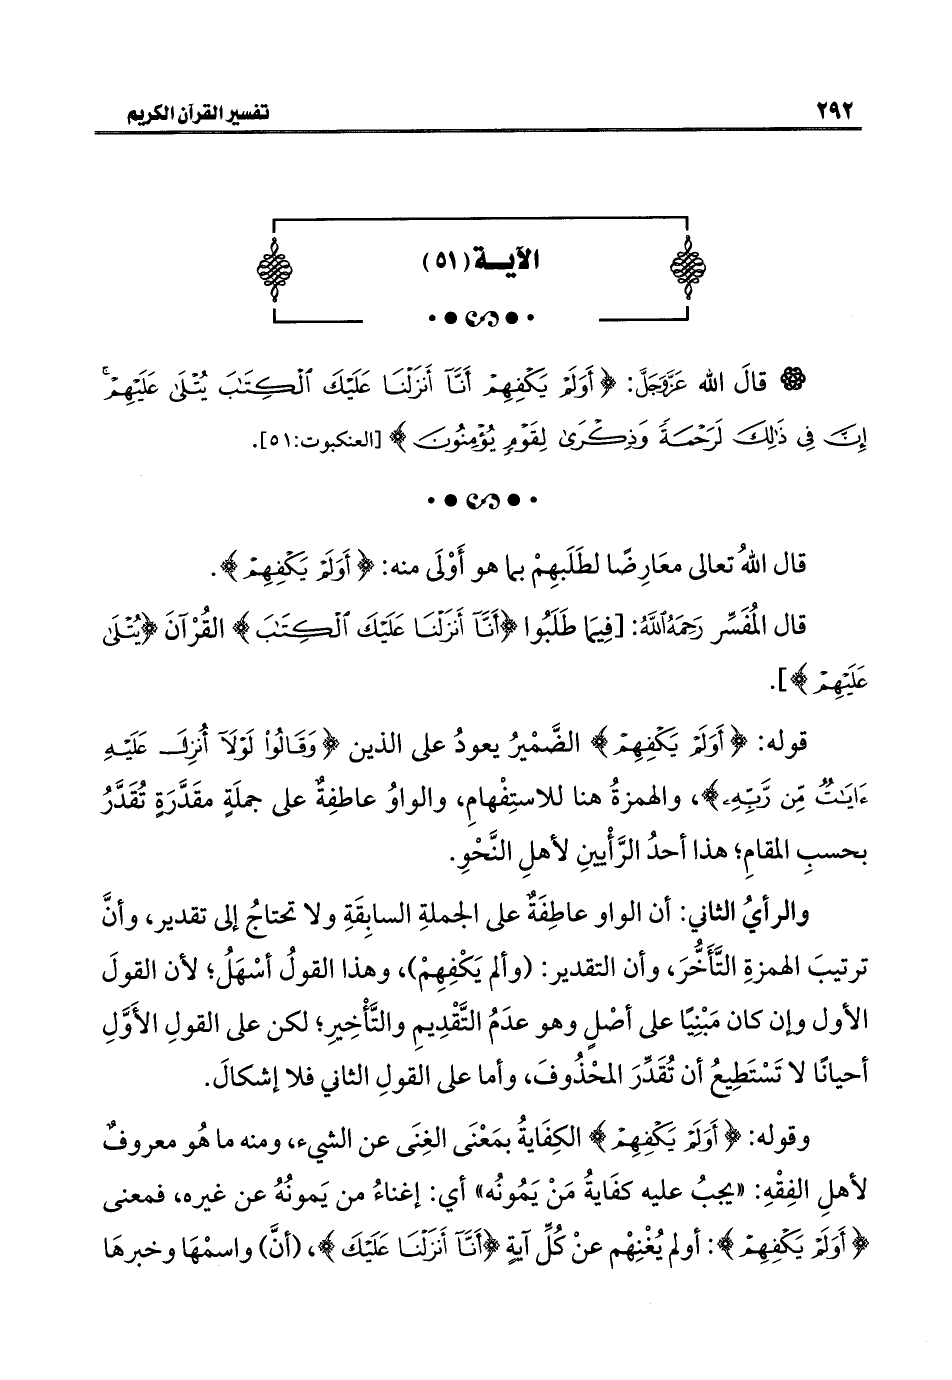 ٢٩٢
تفسير القرآن الكريم
الآيــة (٥١)
قالَ الله عَزَّوَجَلَّ: ﴿أَوَلَمْ يَكْفِهِمْ أَنَّآ أَنزَلْنَا عَلَيْكَ ٱلْكِتَٰبَ يُتْلَىٰ عَلَيْهِمْ ۚ
إِنَّ فِى ذَٰلِكَ لَرَحْمَةً وَذِكْرَىٰ لِقَوْمٍ يُؤْمِنُونَ﴾ [العنكبوت:٥١].
قال اللهُ تعالى معَارِضًا لطَلَبهِمْ بما هو أَوْلَى منه: ﴿أَوَلَمْ يَكْفِهِمْ﴾.
قال المُفَسِّر رَحِمَهُ ٱللَّهُ: [فِيمَا طَلَبُوا ﴿أَنَّآ أَنزَلْنَا عَلَيْكَ ٱلْكِتَٰبَ﴾ القُرْآنَ ﴿يُتْلَىٰ
عَلَيْهِمْ﴾].
قوله: ﴿أَوَلَمْ يَكْفِهِمْ﴾ الضَّمْيرُ يعودُ على الذين ﴿وَقَالُوا۟ لَوْلَآ أُنزِلَ عَلَيْهِ
ءَايَٰتٌ مِّن رَّبِّهِۦ﴾، والهمزةُ هنا للاستِفْهامِ، والواوُ عاطفِةٌ على جملَةٍ مقدَّرَةٍ تُقَدَّرُ
بحسبِ المقامِ؛ هذا أحدُ الرَّأْيينِ لأهلِ النَّحْوِ.
والرأيُ الثاني: أن الواو عاطِفَةٌ على الجملةِ السابقَةِ ولا تحتاجُ إلى تقدير، وأنَّ
ترتيبَ الهمزةِ التَّأَخُّرَ، وأن التقدير: (وألم يَكْفِهِمْ)، وهذا القولُ أسْهَلُ؛ لأن القولَ
الأول وإن كان مَبْنِيًا على أصْلٍ وهو عدَمُ التَّقْديمِ والتَّأْخِيرِ؛ لكن على القولِ الأَوَّلِ
أحيانًا لا تَسْتَطِيعُ أن تُقَدِّرَ المحْذُوفَ، وأما على القولِ الثاني فلا إشكالَ.
وقوله: ﴿أَوَلَمْ يَكْفِهِمْ﴾ الكِفَايةُ بمَعْنَى الغِنَى عن الشيء، ومنه ما هُو معروفٌ
لأهلِ الفِقْهِ: «يجبُ عليه كفَايةُ مَنْ يَمُونُه» أي: إغناءُ من يَمونُهُ عن غيره، فمعنى
﴿أَوَلَمْ يَكْفِهِمْ﴾: أولم يُغْنِهْم عنْ كُلِّ آيةٍ ﴿أَنَّآ أَنزَلْنَا عَلَيْكَ﴾، (أنَّ) واسمْهَا وخبرهَا